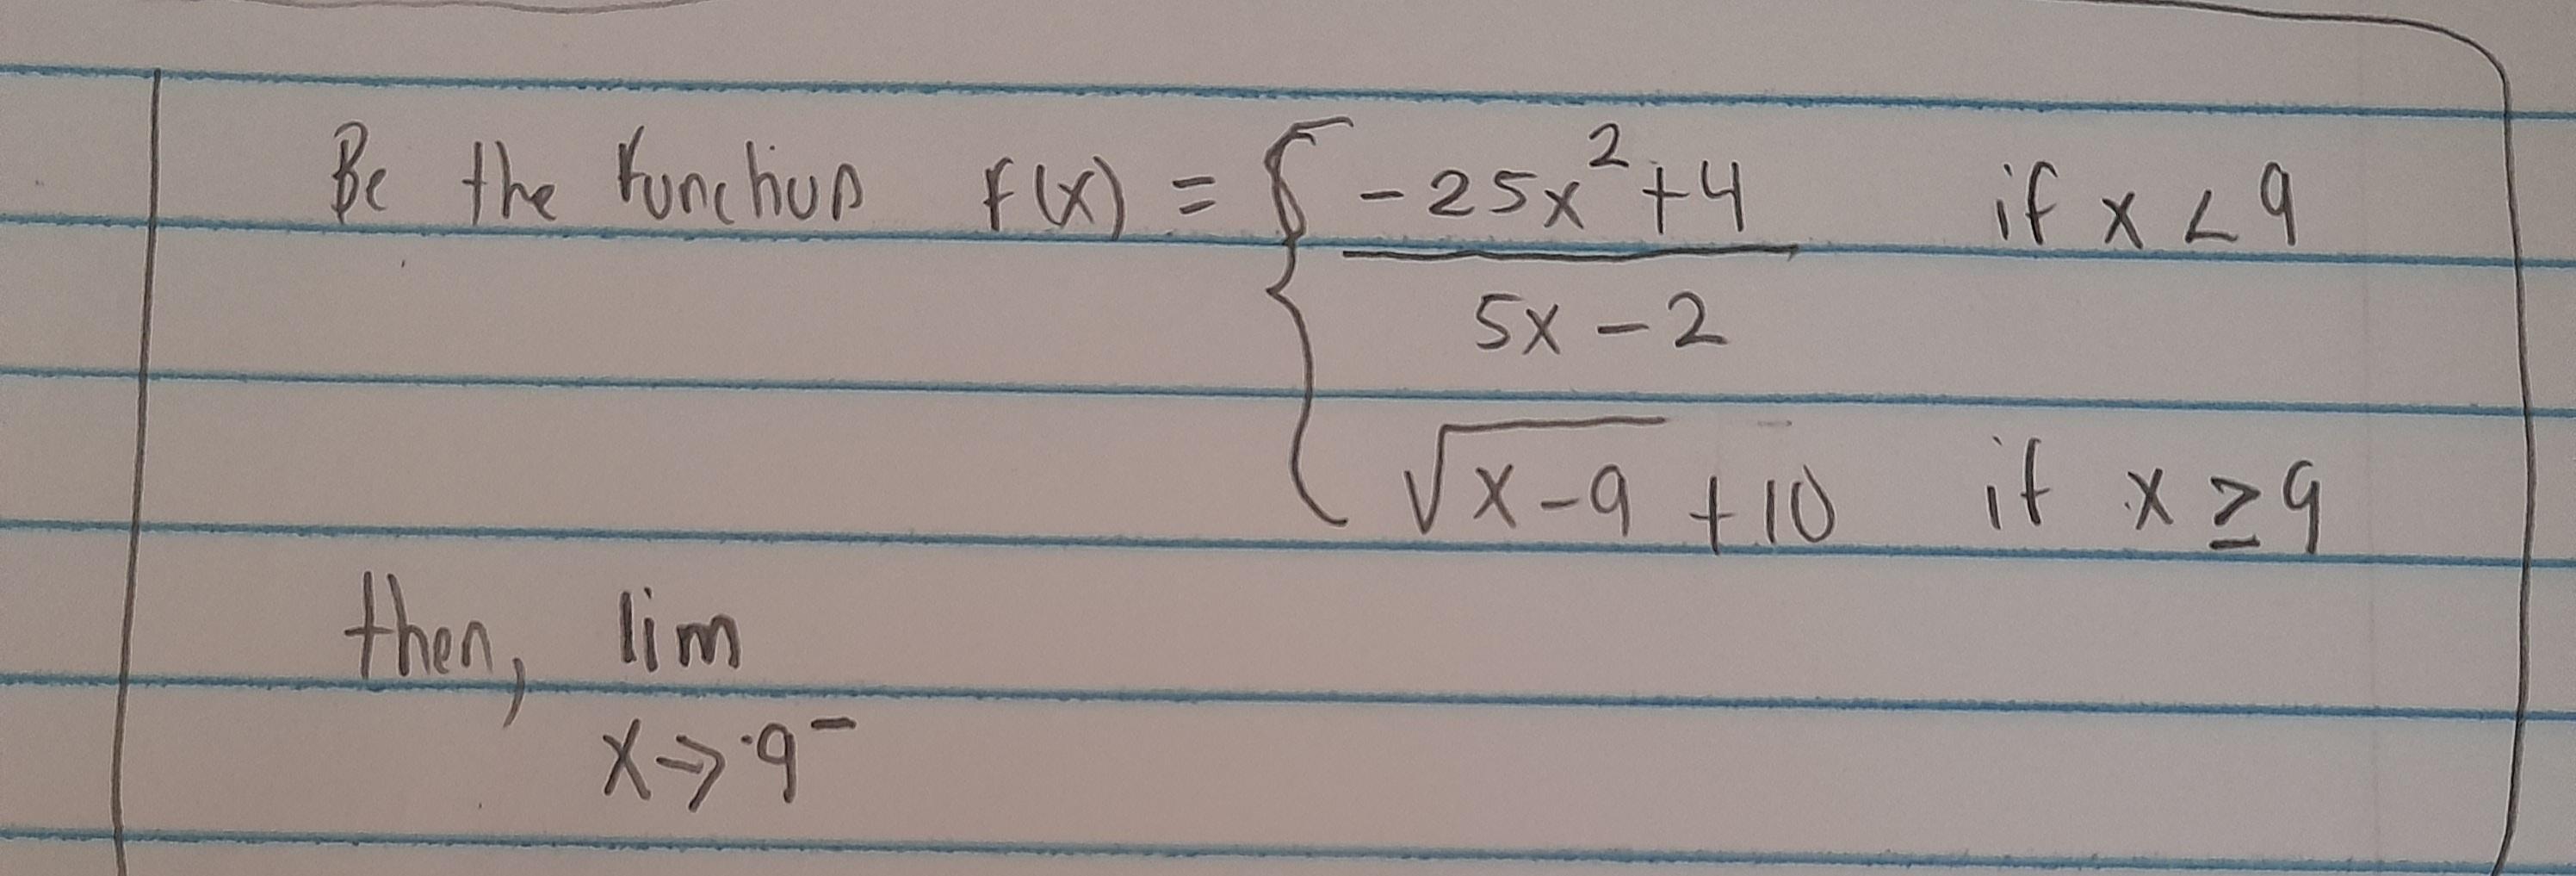 Be the function f(x) = { -25x² + 4 if x < 9
5x - 2
√x-9 + 10 if x ≥ 9
then, lim
x → 9⁻